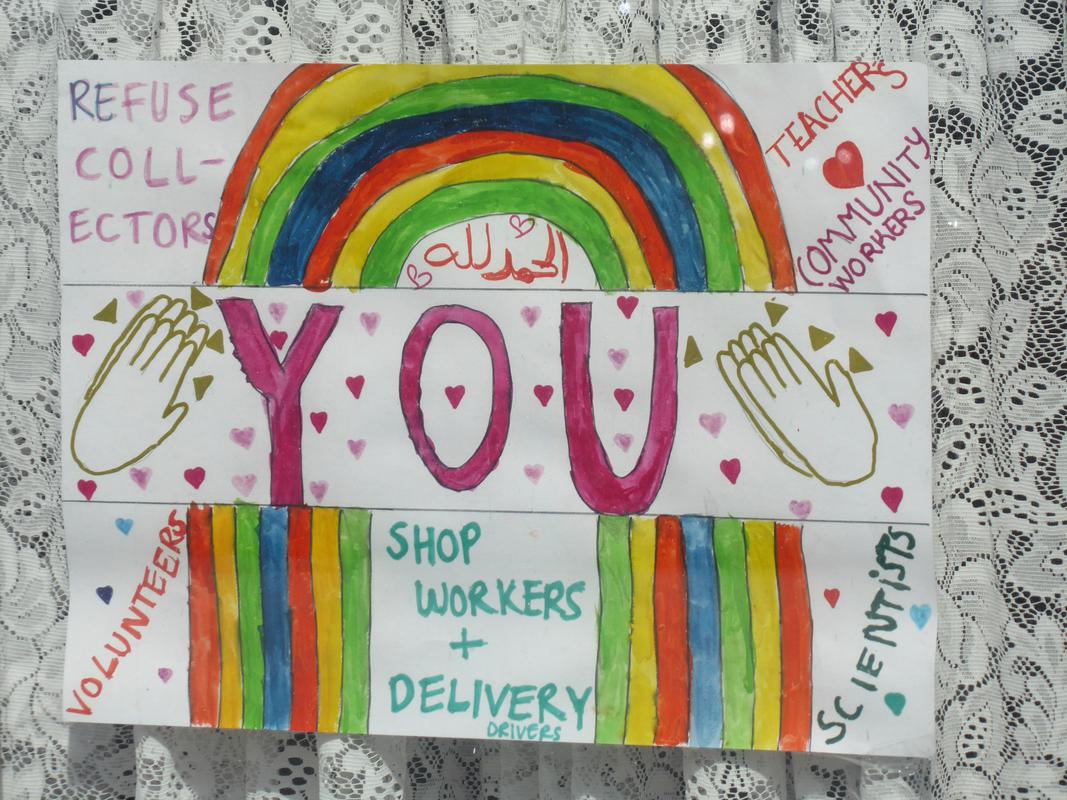 REFUSE
COLL-
ECTORS
TEACHERS
COMMUNITY
WORKERS
الحمد لله
YOU
VOLUNTEERS
SHOP
WORKERS
+
DELIVERY
DRIVERS
SCIENTISTS